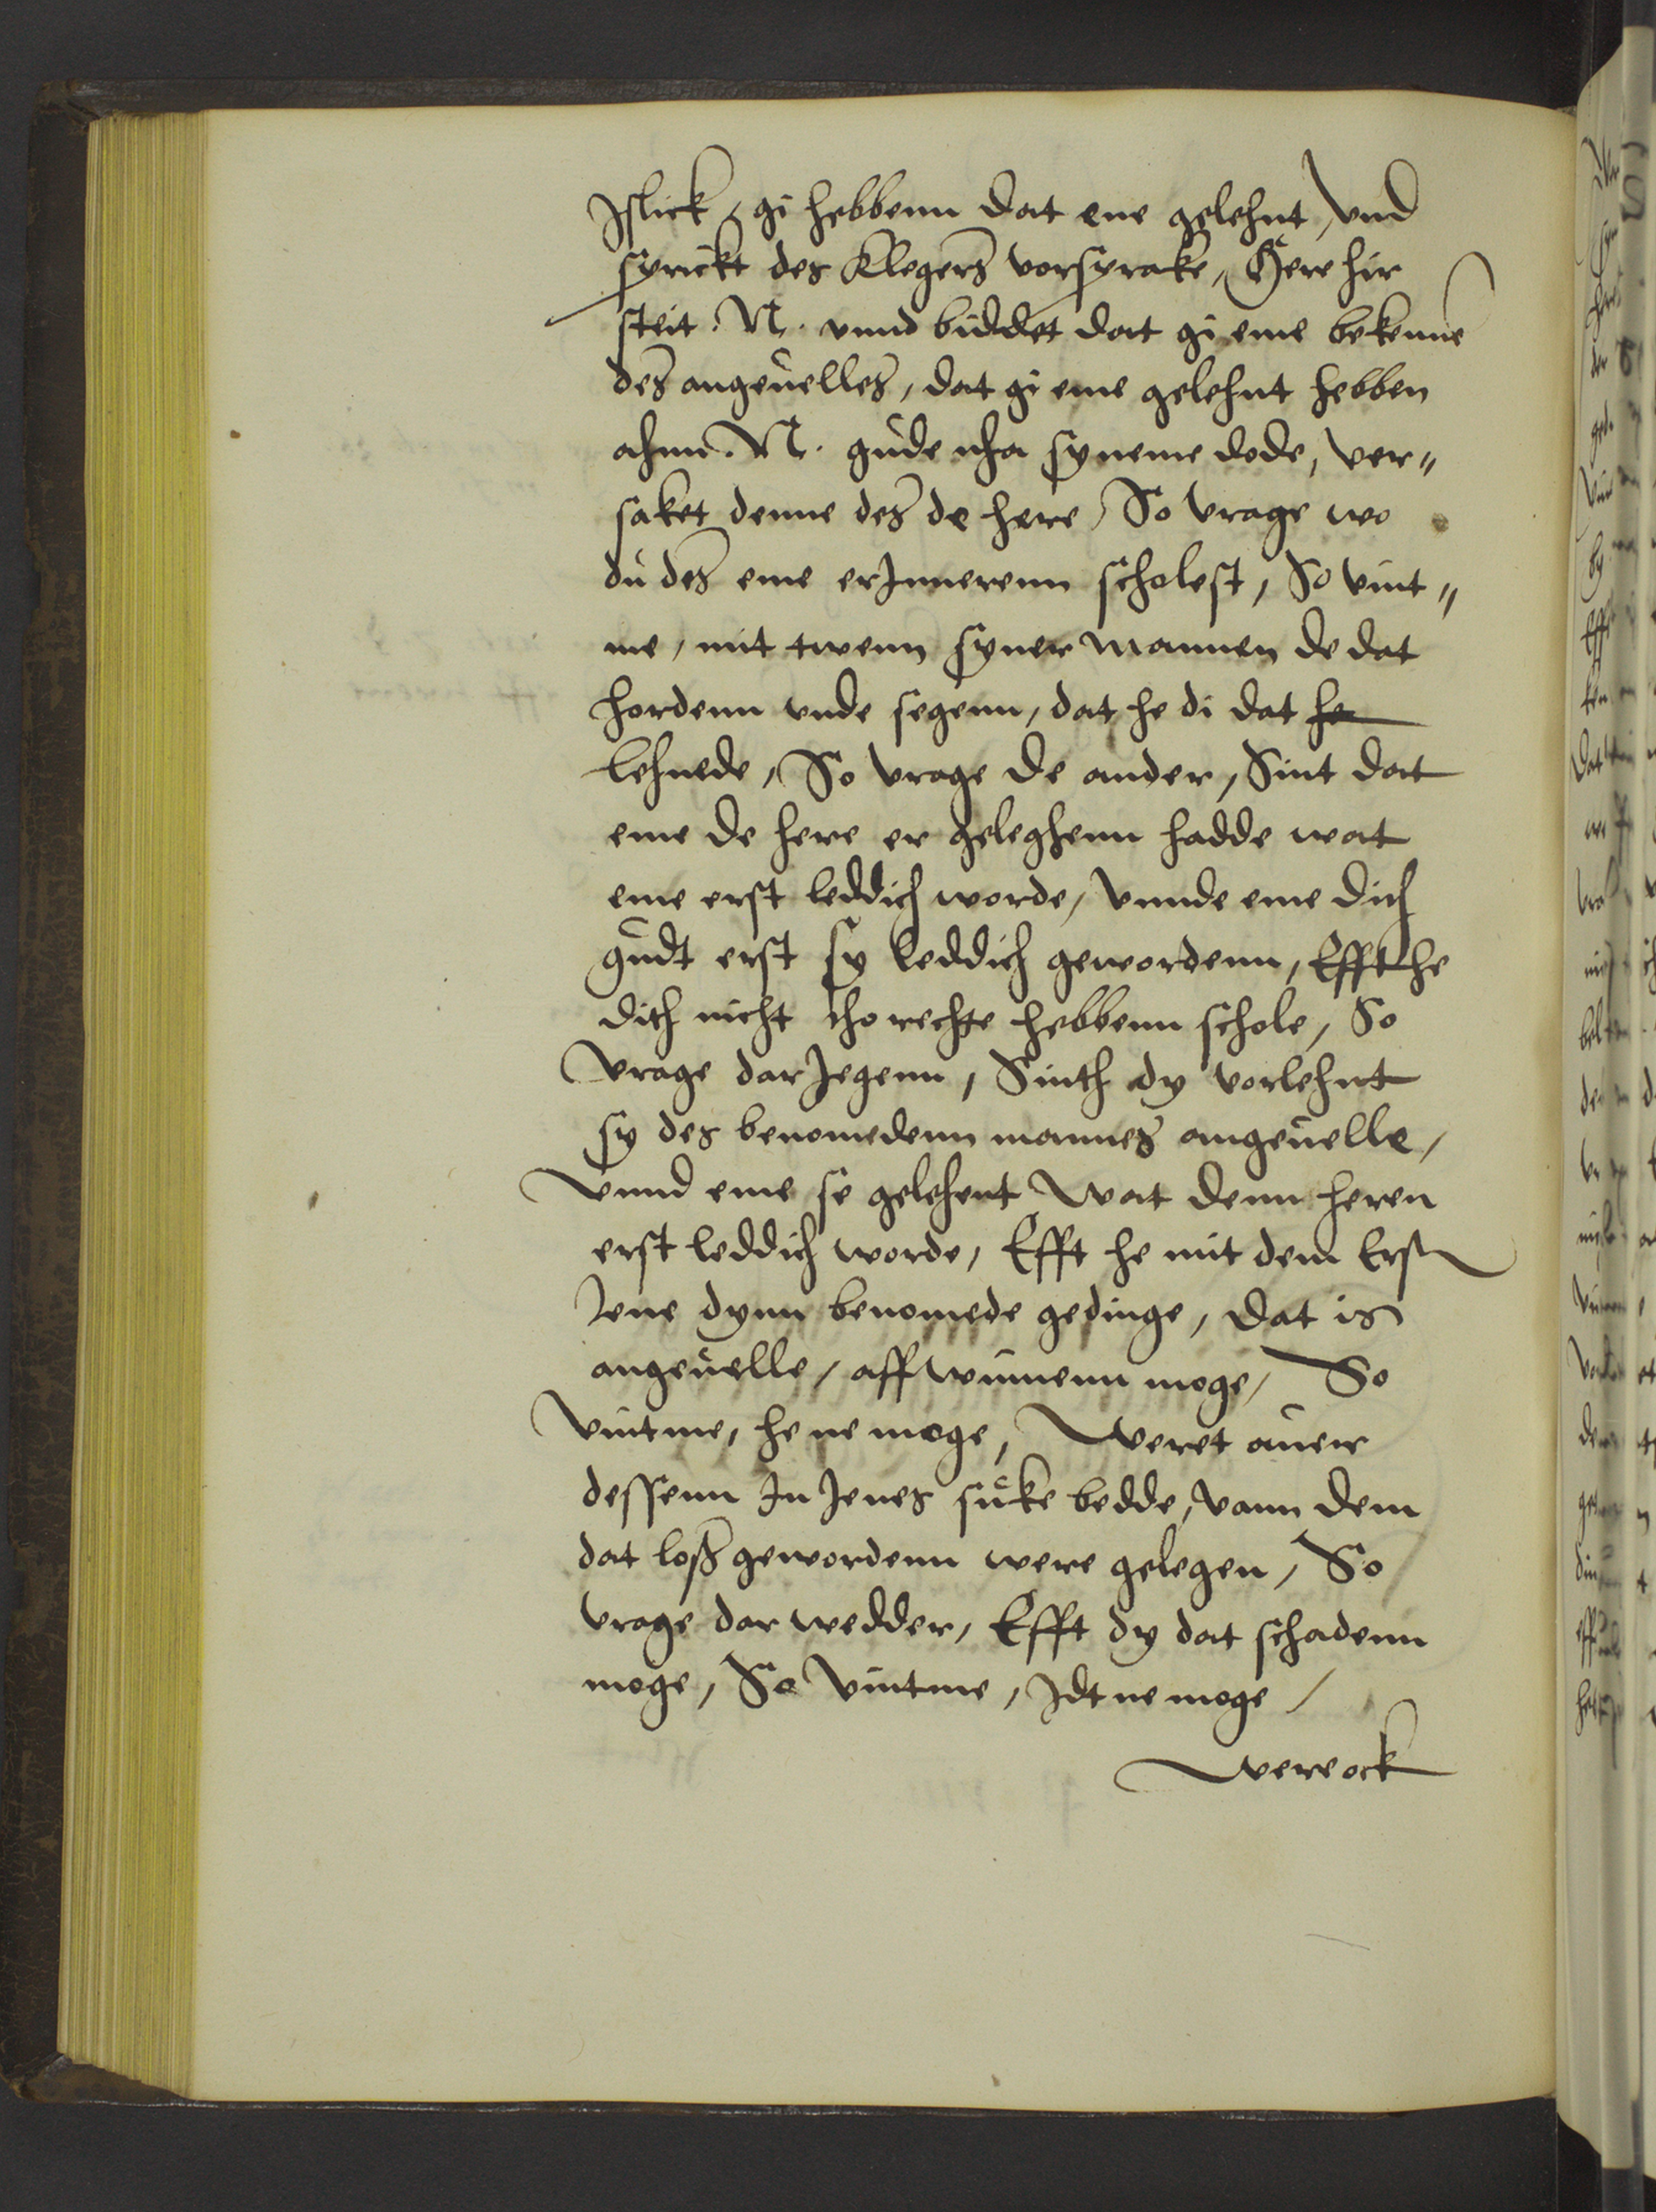 Islick, gi hebbenn dat ene gelehnt, Vnd
sprickt des Klegers vorsprake, Here hir
steit .N. vnnd biddet dat gi eme bekenne
des angeuelles, dat gi eme gelehnt hebben
ahnn .N. gude nha syneme dode, ver„
saket denne des de here, So vrage wo
du des eme erInnerenn scholest, So vint„
me, mit twenn syner mannen de dat
hordenn vnde segenn, dat he di dat he
lehnede, So vrage de ander, Sint dat
eme de here er geleghenn hadde wat
eme erst leddich worde, Vnnde eme dith
gudt erst sy leddich gewordenn, Efft he
dith nicht tho rechte hebbenn schole, So
Vrage dar Jegenn, Sinth dy vorlehnt
sy des benomedenn mannes angeuelle,
Vnnd eme se gelehent wat denn heren
erst leddich worde, Efft he mit dem Erst
Jene dynn benomede gedinge, dat is
angeuelle, affwinnenn moge, So
Vintme, he ne moge, Weret auer
dessenn In Jenes suke bedde, vann dem
dat loß gewordenn were gelegen, So
vrage dar wedder, Efft dy dat schadenn
moge, So Vintme, Idt ne moge /
Were ock